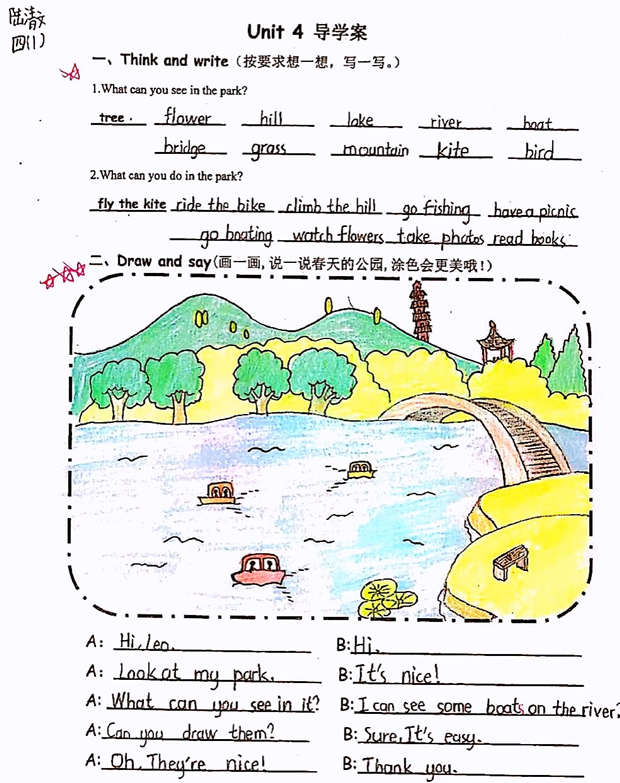 陆清
四(1)
Unit 4 导学案
一、Think and write（按要求想一想，写一写。）
1.What can you see in the park?
tree . flower hill lake river boat
bridge grass mountain kite bird
2.What can you do in the park?
fly the kite ride the bike climb the hill go fishing have a picnic
go boating watch flowers take photos read books
二、Draw and say(画一画, 说一说春天的公园, 涂色会更美哦!)
A: Hi, Leo. B: Hi.
A: Look at my park. B: It's nice!
A: What can you see in it? B: I can see some boats on the river.
A: Can you draw them? B: Sure, It's easy.
A: Oh, They're nice! B: Thank you.